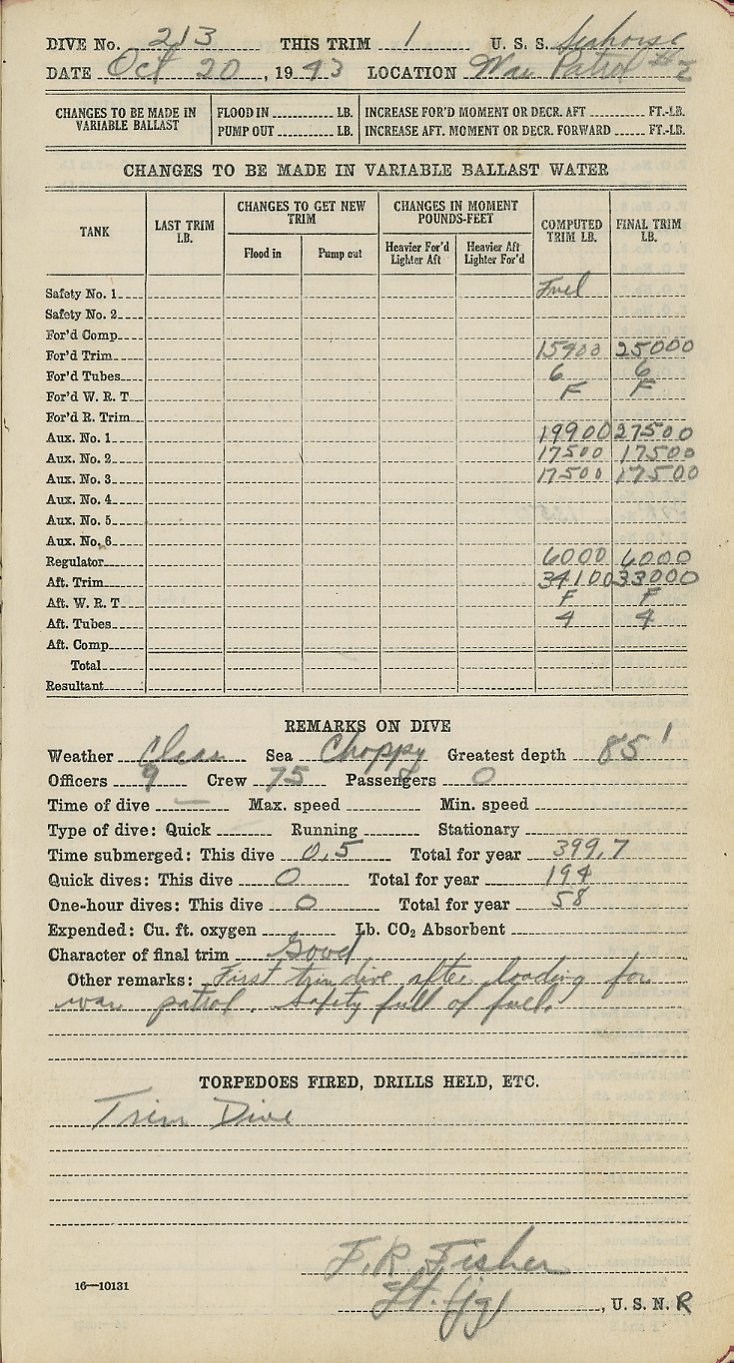 DIVE No. 213 THIS TRIM 1 U. S. S. Seahorse
DATE Oct 20, 1943 LOCATION War Patrol #2
CHANGES TO BE MADE IN VARIABLE BALLAST
FLOOD IN LB. INCREASE FOR'D MOMENT OR DECR. AFT FT.-LB.
PUMP OUT LB. INCREASE AFT. MOMENT OR DECR. FORWARD FT.-LB.
CHANGES TO BE MADE IN VARIABLE BALLAST WATER
TANK LAST TRIM LB. CHANGES TO GET NEW TRIM CHANGES IN MOMENT POUNDS-FEET COMPUTED TRIM LB. FINAL TRIM LB.
Flood in Pump out Heavier For'd Lighter Aft Heavier Aft Lighter For'd
Safety No. 1 Fuel
Safety No. 2
For'd Comp
For'd Trim 15400 25000
For'd Tubes 6 6
For'd W. R. T F F
For'd R. Trim
Aux. No. 1 19900 27500
Aux. No. 2 17500 17500
Aux. No. 3 17500 17500
Aux. No. 4
Aux. No. 5
Aux. No. 6
Regulator 6000 6000
Aft. Trim 34100 33000
Aft. W. R. T F F
Aft. Tubes 4 4
Aft. Comp
Total
Resultant
REMARKS ON DIVE
Weather Clear Sea Choppy Greatest depth 85'
Officers 9 Crew 75 Passengers 0
Time of dive — Max. speed Min. speed
Type of dive: Quick Running Stationary
Time submerged: This dive 0.5 Total for year 399.7
Quick dives: This dive 0 Total for year 194
One-hour dives: This dive 0 Total for year 58
Expended: Cu. ft. oxygen Lb. CO₂ Absorbent
Character of final trim Good
Other remarks: First trim dive after loading for
war patrol. Safety full of fuel.
TORPEDOES FIRED, DRILLS HELD, ETC.
Trim Dive
F. R. Fisher
16—10131
Lt. (jg), U. S. N. R